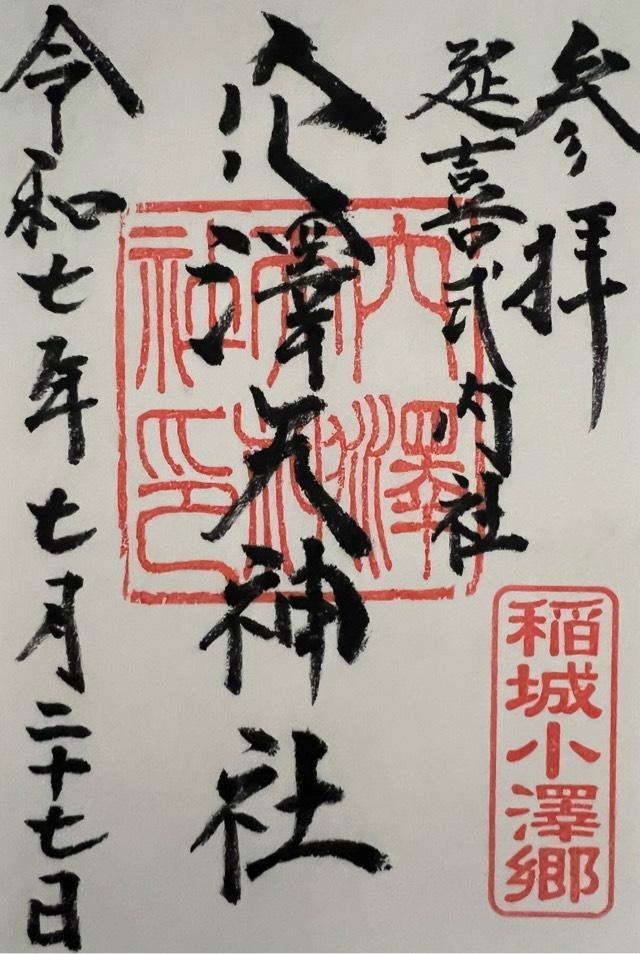 参拝
延喜式内社
穴澤天神社
令和七年七月二十七日
穴澤
天神
社印
稲城小澤郷